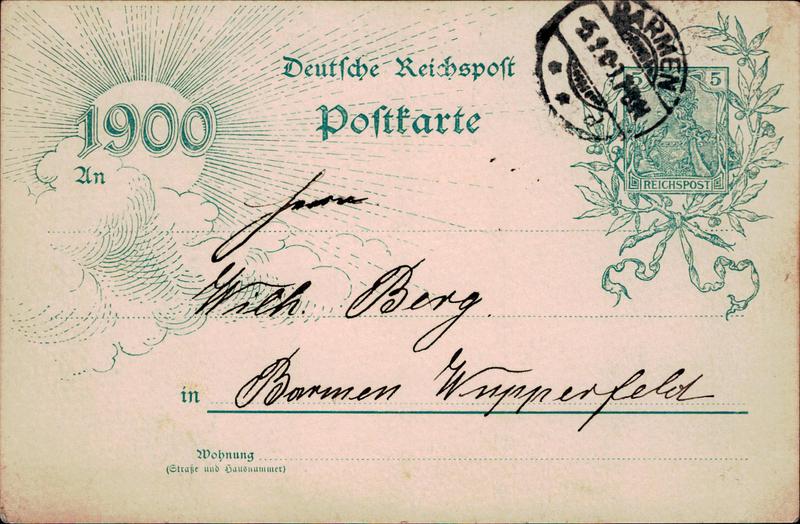 Deutsche Reichspost
Postkarte
1900
BARMEN
5 5
REICHSPOST
An
Herrn
Wilh. Berg.
in Barmen Wupperfeld
Wohnung
(Straße und Hausnummer)